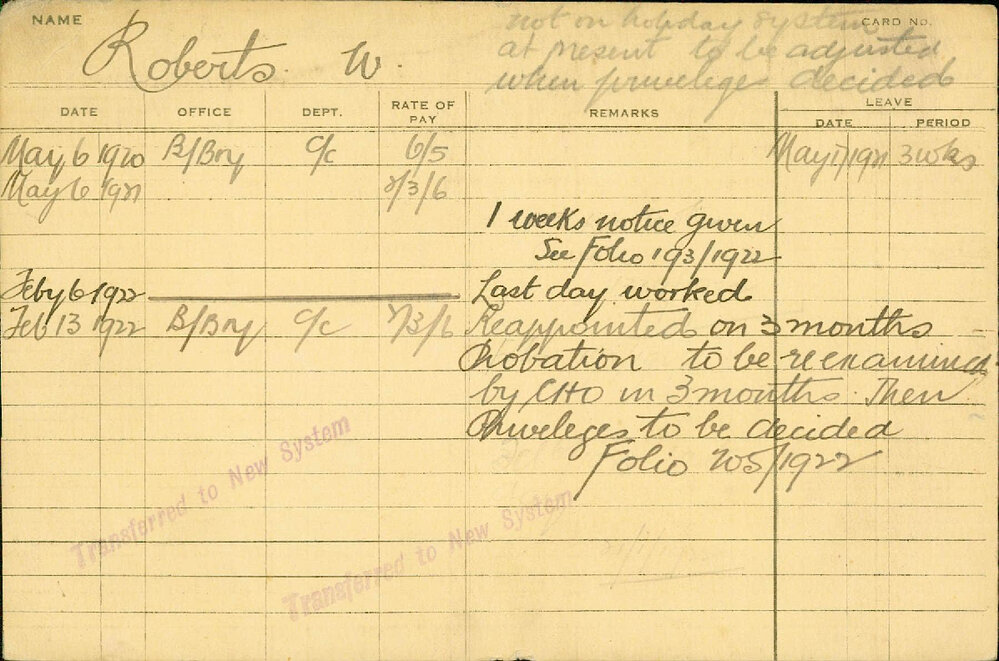 NAME
Roberts. W.
not on holiday system
CARD No.
at present to be adjusted
when priveleges decided
DATE OFFICE DEPT. RATE OF PAY REMARKS LEAVE
DATE PERIOD
May 6 1920 B/Bry O/c 6/5 May 17/1921 3 wks
May 6 1921 7/3/6
1 weeks notice given
See Folio 193/1922
Feby 6 1922 Last day worked
Feb 13 1922 B/Bry O/c 7/3/6 Reappointed on 3 months
Probation to be reexamined
by CHO in 3 months. Then
Priveleges to be decided
Folio 205/1922
Transferred to New System
Transferred to New System